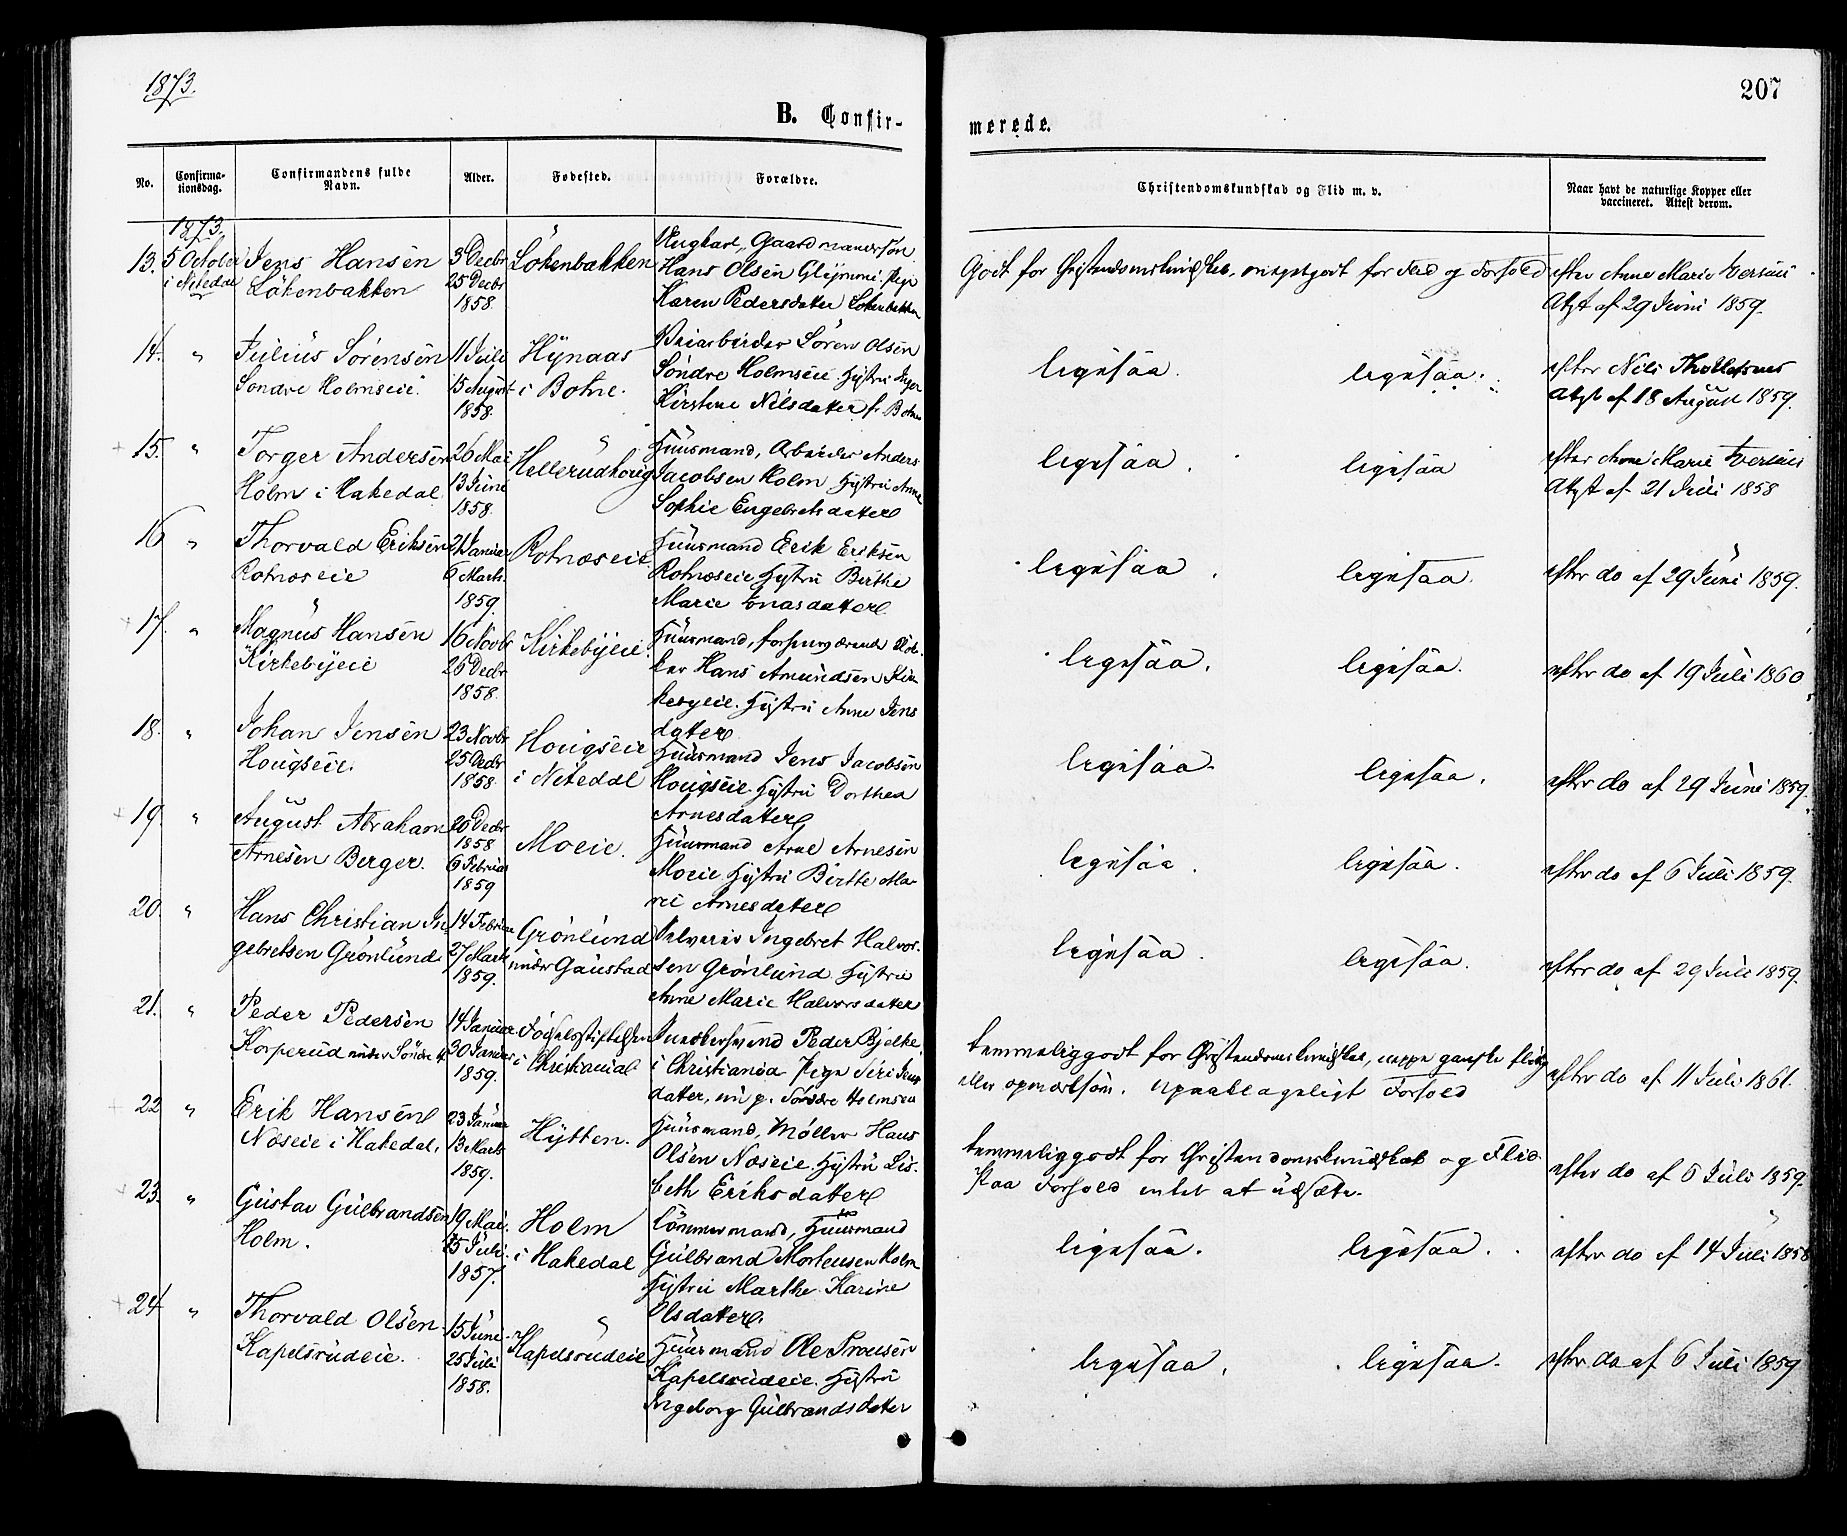 1873.
207
B. Confir-
merede.
No.
Confirma-
tionsdag.
Confirmandens fulde
Navn.
Alder.
Fødested.
Forældre.
Christendomskundskab og Flid m. v.
Naar havt de naturlige Kopper eller
vaccineret. Attest derom.
1873.
13. 5 October
i Nitedal
Jens Hansen
Lökenbakken
3 Decbr
25 Decbr
1858.
Lökenbakken
Ungkarl, Gaardmandssön
Hans Olsen Pige
Karen Pedersdatter Lökenbakken
Godt for Christendomskundskab, meget godt for Flid og Forhold
efter Anne Marie Iversens
Atst af 29 Juni 1859.
14. "
Julius Sörensen
Söndre Holmseie.
11 Juli
15 August
1858.
Hynaas
i Botne.
Veiarbeider Sören Olsen
Söndre Holmseie Hustru Inger
Kirstine Nilsdatter f. Botne
ligesaa. ligesaa.
efter Nils
Atst af 18 August 1859.
15. "
Torger Andersen
Holm i Hakedal
26 Mai
13 Juni
1858.
Hellerudhoug
Huusmand, Arbeider Anders
Jacobsen Holm Hustru Anne
Sophie Engebretsdatter
ligesaa. ligesaa
efter Anne Marie Iversens
Atst af 21 Juli 1858
16 "
Thorvald Eriksen
Rotnæseie
21 Januar
6 Marts.
1859.
Rotnæseie
Huusmand Erik Eriksen
Rotnæseie Hustru Birthe
Marie Jonasdatter.
ligesaa. ligesaa.
efter do af 29 Juni 1859.
17. "
Magnus Hansen
Kirkebyeie
16 Novbr
26 Decbr
1858.
Kirkebyeie.
Huusmand, forhenværende Klok-
ker Hans Amundsen Kir-
kebyeie. Hustru Anne Jens
datter
ligesaa. ligesaa.
efter do af 19 Juli 1860
18. "
Johan Jensen
Hougseie.
23 Novbr
25 Decbr
1858.
Hougseie
i Nitedal
Huusmand Jens Jacobsen
Hougseie Hustru Dorthea
Arnesdatter
ligesaa. ligesaa.
efter do af 29 Juni 1859.
19. "
August Abraham
Arnesen Berger.
20 Decbr
1858
6 Februar
1859
Moeie.
Huusmand Arne Arnesen
Moeie Hustru Birthe Ma-
rie Arnesdatter
ligesaa. ligesaa.
efter do af 6 Juli 1859.
20. "
Hans Christian In-
gebretsen Grönlund.
14 Februar
27 Marts
1859.
Grönlund
under Gaustad
Selveier Ingebret Halvor-
sen Grönlund Hustru
Anne Marie Halvorsdatter
ligesaa. ligesaa.
efter do af 29 Juli 1859.
21. "
Peder Pedersen
Korperud under Söndre H.
14 Januar
30 Januar
1859.
Födselsstiftelsen
i Christiania
Peder Bjelke,
i Christiania Pige Siri Jens
datter, nu p. Söndre Holmseie
temmelig godt for Christendomskundskab, neppe ganske flittig
eller opmærksom. Upaaklageligt Forhold
efter do af 11 Juli 1861.
22 "
Erik Hansen
Næseie i Hakedal.
23 Januar
13 Marts
1859.
Hytten.
Huusmand, Möller Hans
Olsen Næseie. Hustru Lis-
beth Eriksdatter
temmelig godt for Christendomskundskab og Flid.
Paa Forhold intet at udsætte.
efter do af 6 Juli 1859.
23. "
Gustav Gulbrandsen
Holm.
19 Mai.
25 Juli.
1857.
Holm
i Hakedal
Tömmermand, Huusmand
Gulbrand Mortensen Holm
Hustru Marthe Karine
Olsdatter.
ligesaa. ligesaa.
efter do af 14 Juli 1858
24 "
Thorvald Olsen.
Kapelsrudeie.
15 Juni
25 Juli
1858.
Kapelsrudeie
Huusmand Ole
Kapelsrudeie. Hustru
Ingeborg Gulbrandsdatter
ligesaa. ligesaa.
efter do af 6 Juli 1859